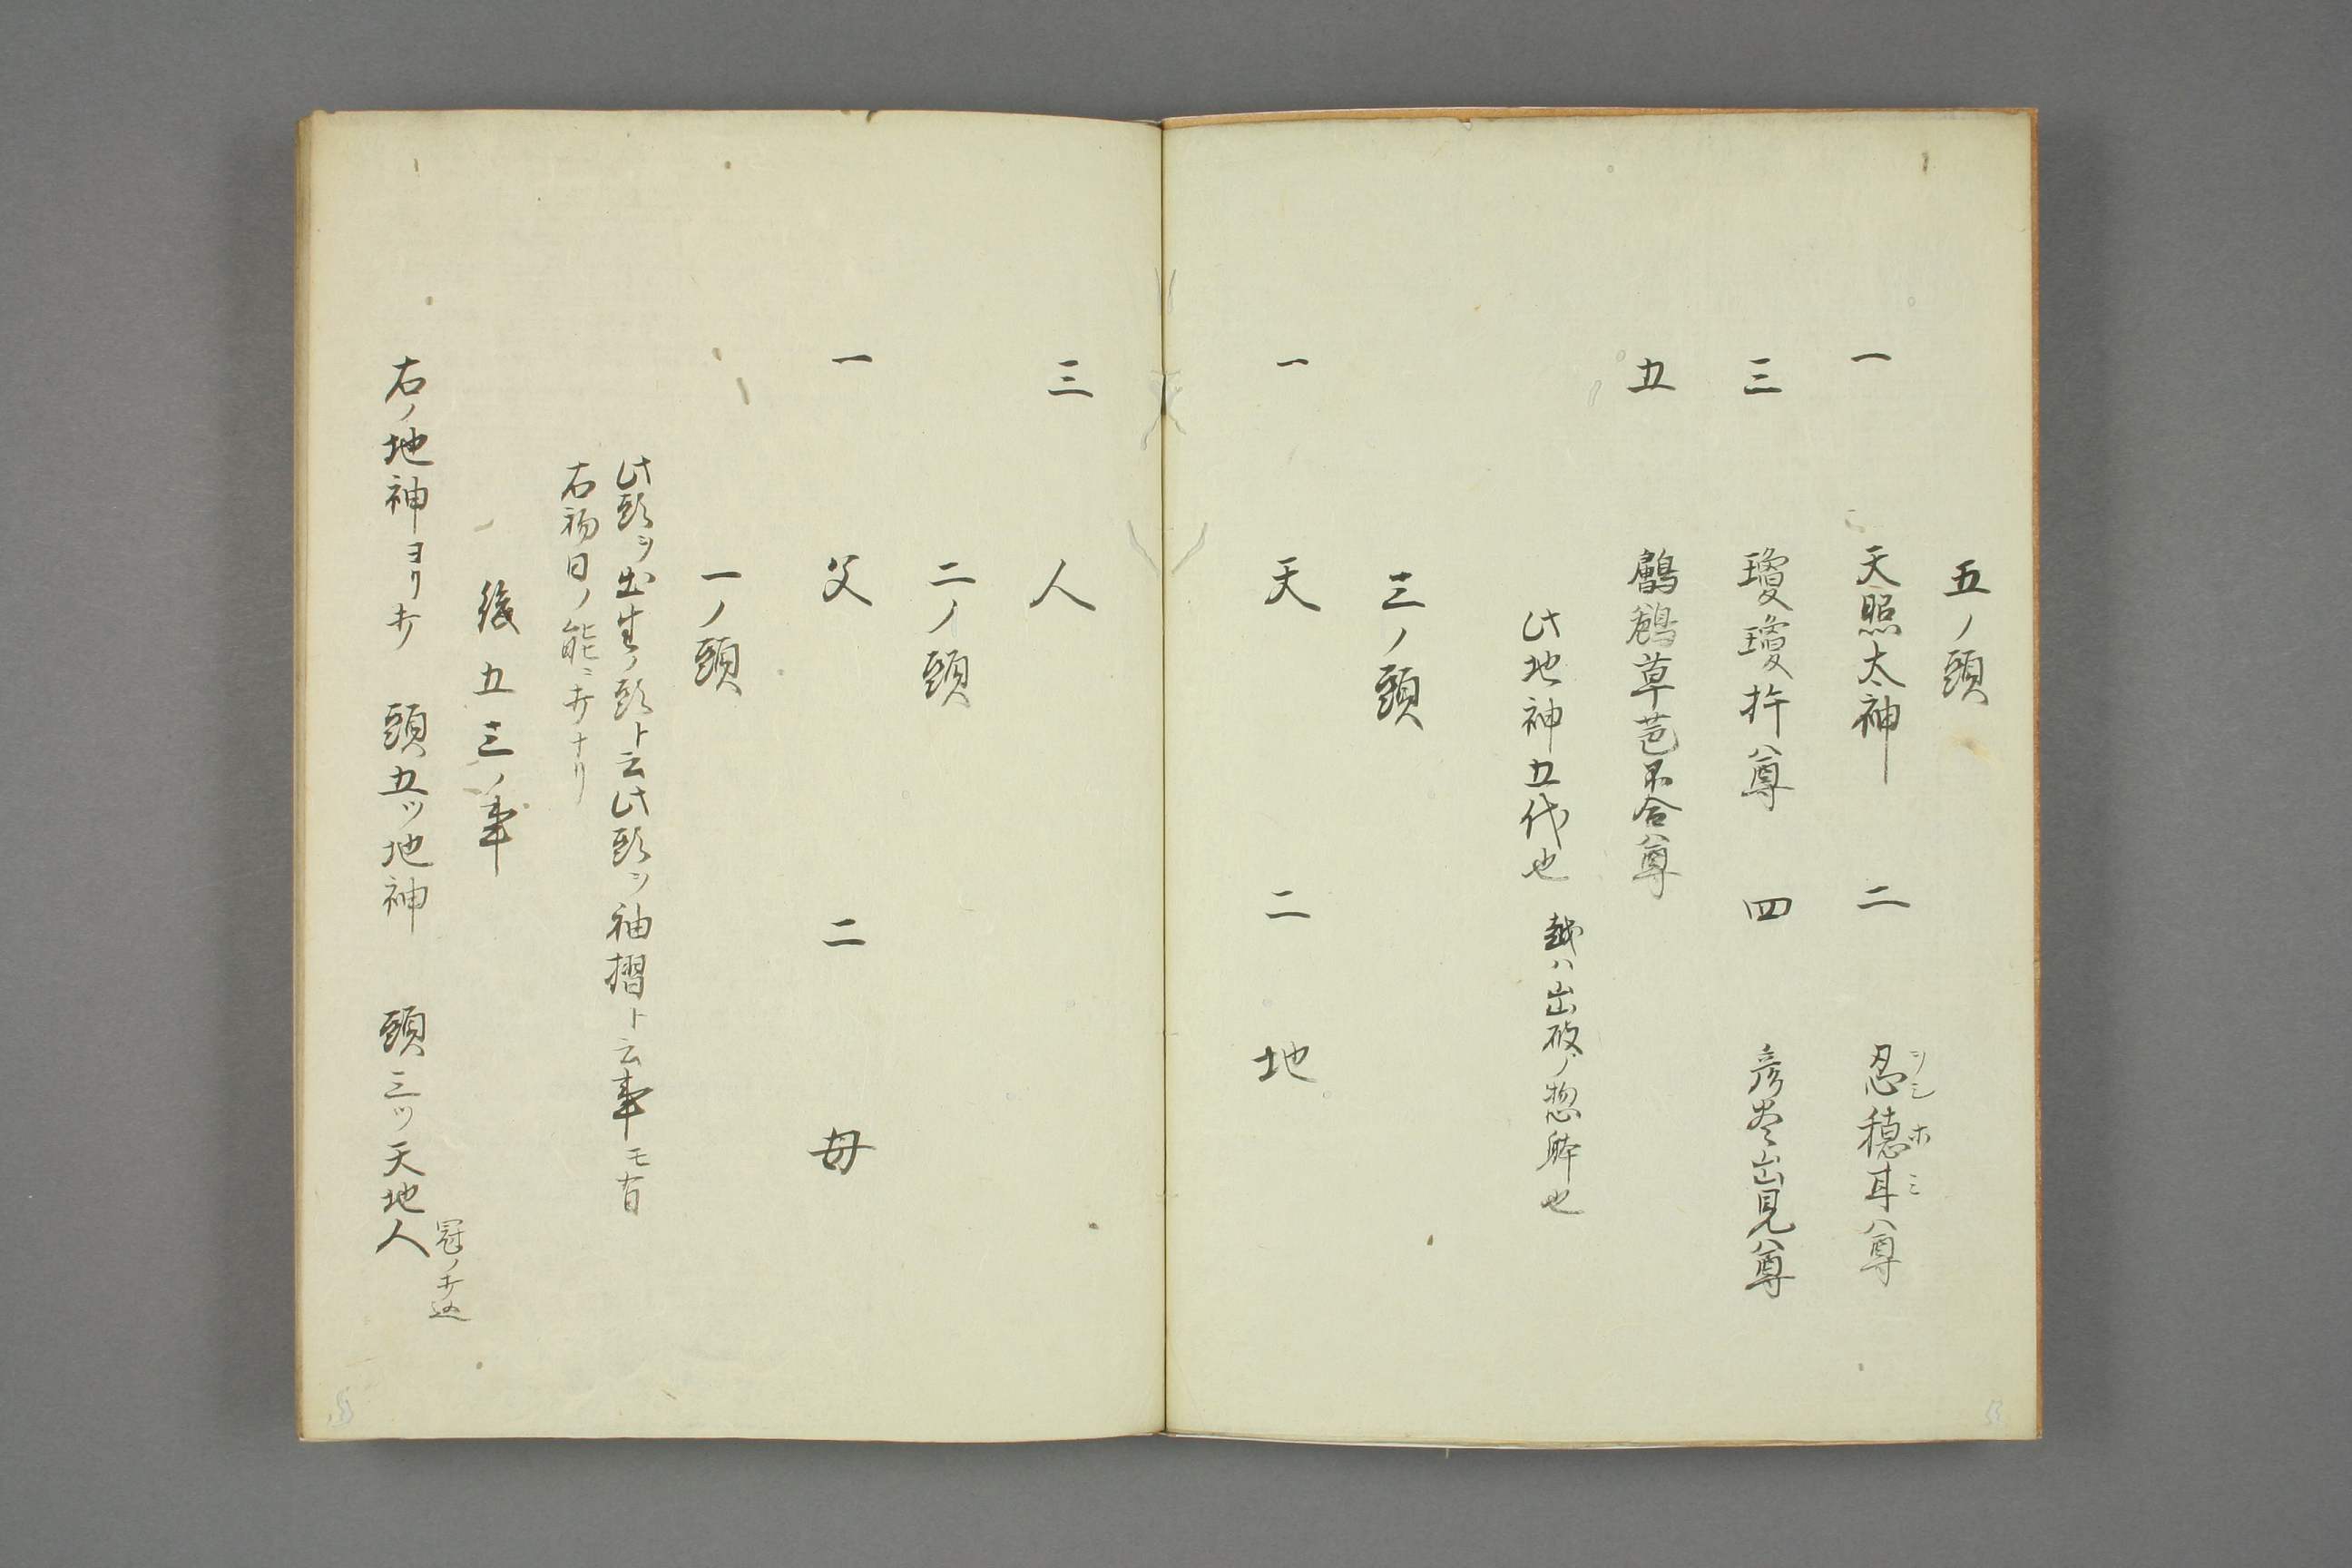 五ノ頭
一 天照太神 二 忍穂耳ハ尊
シミ ホ ミ
三 瓊瓊杵ハ尊 四 彦火々出見ハ尊
五 鸕鶿草芭不合ハ尊
此地神五代也
越ハ出破ノ惣躰也
三ノ頭
一 天 二 地
三 人
二ノ頭
一 父 二 母
一ノ頭
此頭ヲ出生ノ頭ト云此頭ヲ袖摺ト云事モ有
右祢日ノ能ニ有ナリ
後五三ノ事
右ノ地神ヨリ 頭五ツ地神 頭三ツ天地人
冠ノ